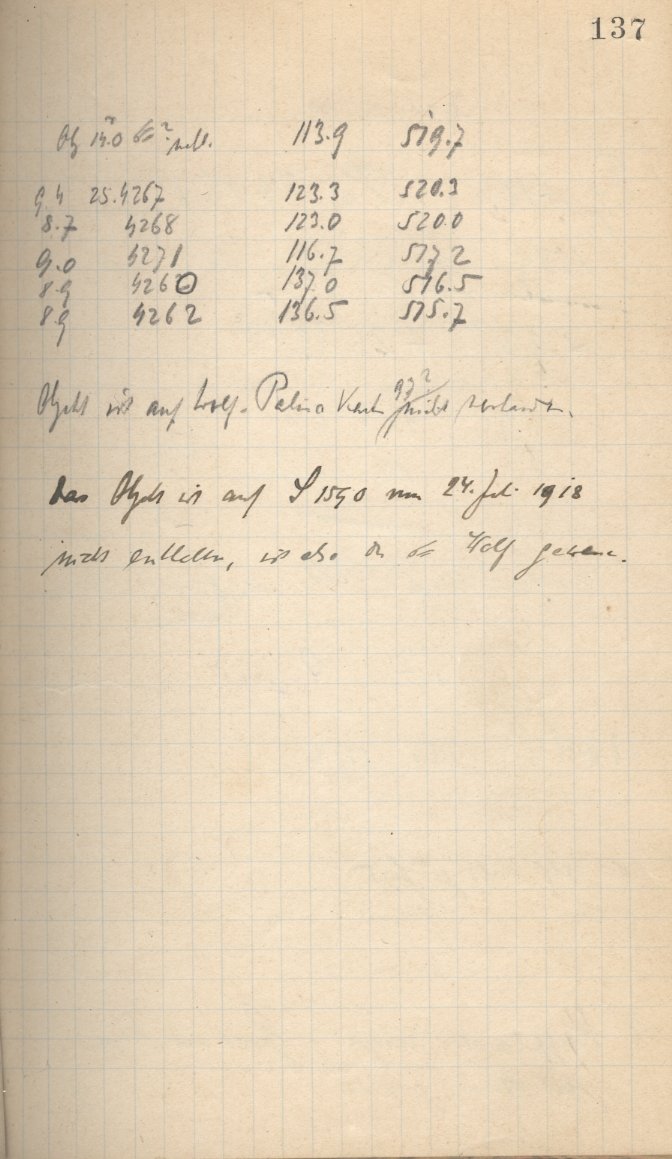 137
Obj 14.0 ☄? 113.9 519.7
9.4 25.4267 123.3 520.3
8.7 4268 123.0 520.0
9.0 4271 116.7 517.2
8.9 4260 137.0 516.5
8.9 4262 136.5 515.7
Objekt ist auf Wolf-Palisa Karte nicht vorhanden.
Das Objekt ist auf S 1590 vom 24. Juli 1918
nicht enthalten, ist also der ☄ Wolf gewesen.